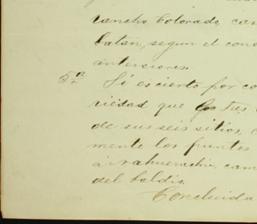 rancho Colorado can
batan, segun el cono
anteriores.
5ª Si es cierto por co
ricidad que los tres
de sus seis sitios,
mente los fuentes
del baldio.
Concluida